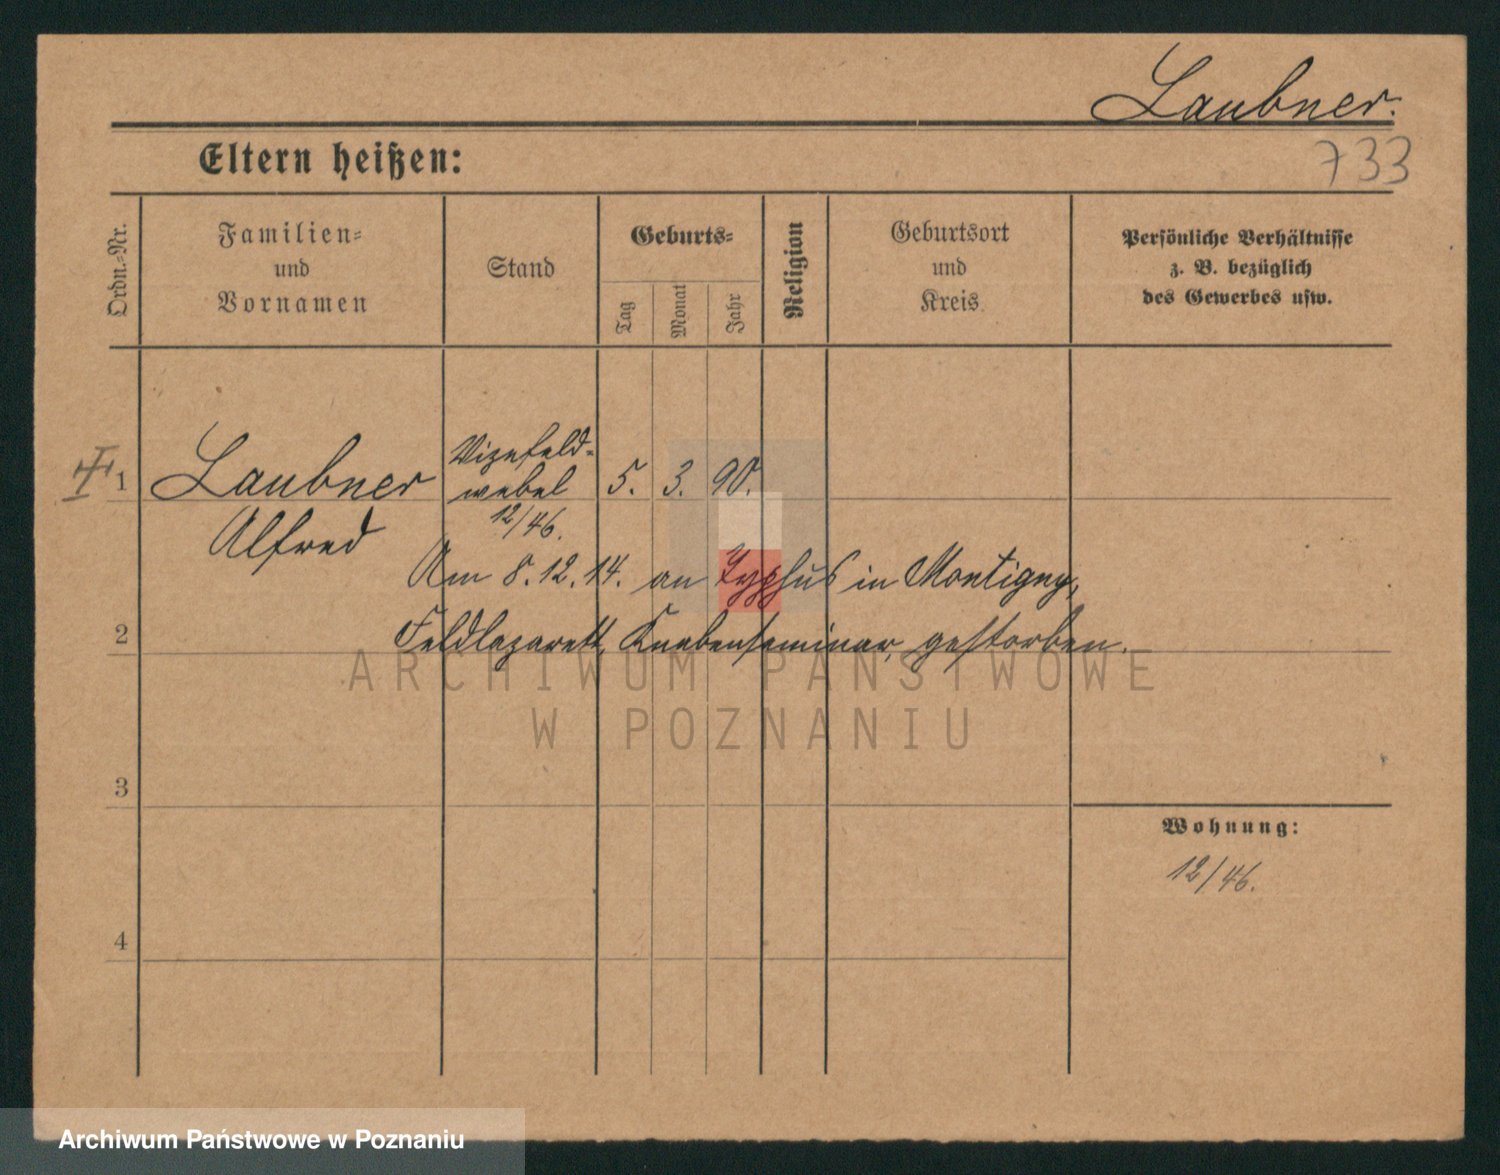 Laubner.
733
Eltern heißen:
Ordn.-Nr.
Familien-
und
Vornamen
Stand
Geburts-
Tag
Monat
Jahr
Religion
Geburtsort
und
Kreis
Persönliche Verhältnisse
z. B. bezüglich
des Gewerbes usw.
1
Laubner
Alfred
Vizefeld-
webel
12/46.
5. 3. 90.
Am 8.12.14. an Typhus in Montigny,
2
Feldlazarett, Knabenseminar, gestorben.
ARCHIWUM PAŃSTWOWE
W POZNANIU
3
Wohnung:
12/46.
4
Archiwum Państwowe w Poznaniu